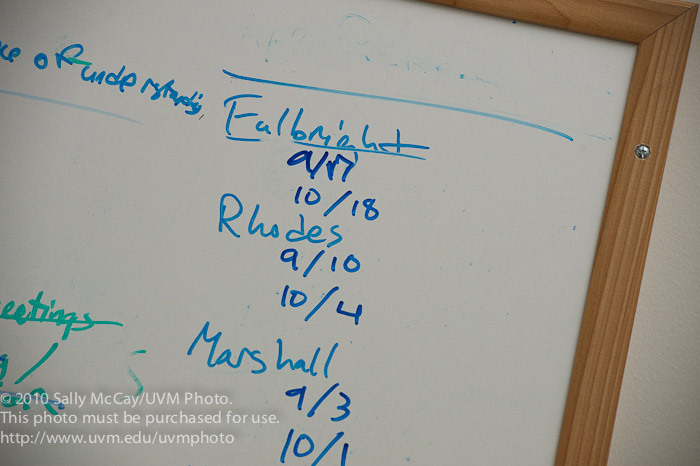 of understanding
Fulbright
9/17
10/18
Rhodes
9/10
10/4
Marshall
9/3
10/1
eetings
© 2010 Sally McCay/UVM Photo.
This photo must be purchased for use.
http://www.uvm.edu/uvmphoto